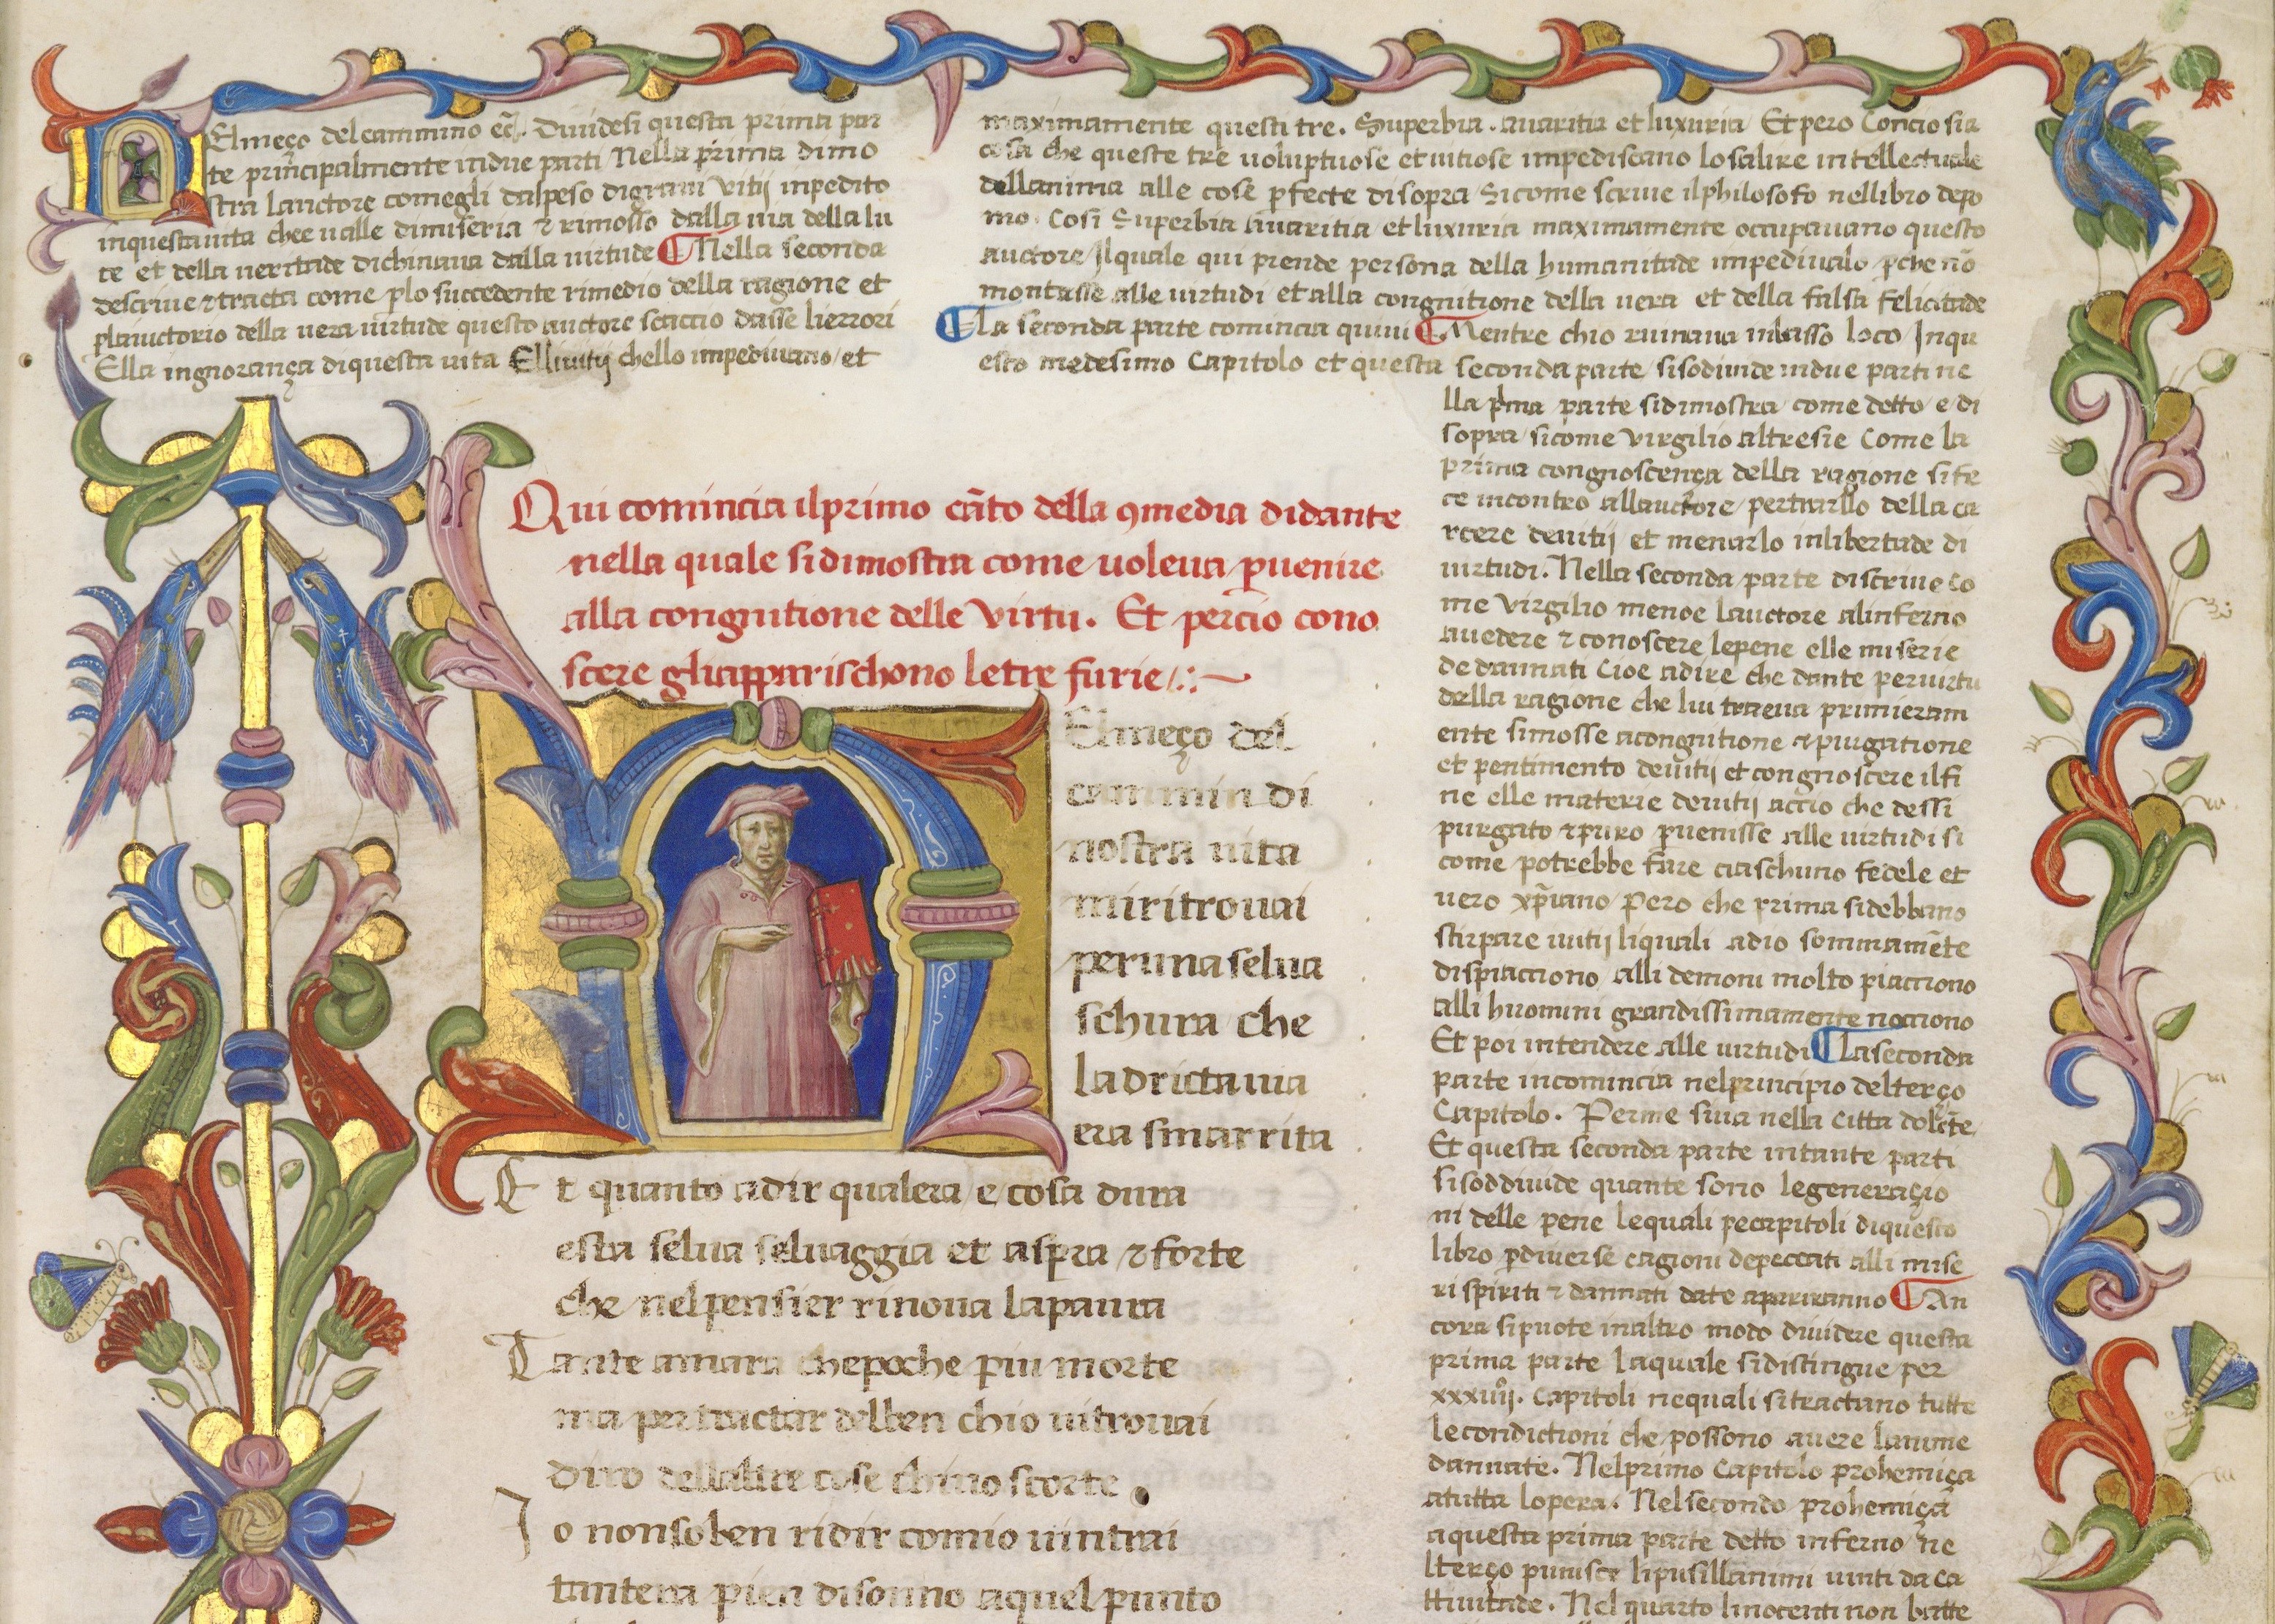 NElmeço delcammino etc̄. Diuidesi questa prima par
te principalmente indue parti Nella prima dimo
stra lauctore comegli dalpeso digraui uitij inpedito
inquestauita chee ualle dimiseria ⁊ rimosso dalla uia della lu
ce et della ueritade dichinaua dalla uirtude ¶ Nella seconda
descriue ⁊tracta come plo succedente rimedio della ragione et
plauctorio della uera uirtude questo auctore scaccio dasse lierrori
Ella ingnorança diquesta uita Elliuitij chello impediuano/et
maximamente questi tre. Superbia. auaritia et luxuria Et pero Concio sia
cosa che queste tre uoluptuose etuitiose impediscano losalire intellectuale
dellanima alle cose pfecte disopra Sicome scriue ilphilosofo nellibro depo
mo. Cosi Superbia Auaritia et luxuria maximamente occupauano questo
auctore/Ilquale qui prende persona della humanitade impediualo pche nō
montasse alle uirtudi et alla congnitione della uera et della falsa felicitade
¶ La seconda parte comincia quiui ¶ Mentre chio ruinaua inbasso loco Inqu
esto medesimo Capitolo et questa seconda parte/sisodiuide indue parti ne
lla pͥma parte sidimostra come detto e di
sopra/sicome Virgilio altresie Come la
prima congnoscença della ragione sife
ce incontro allauctore/pertrarllo della ca
rcere deuitij et menarlo inlibertade di
uirtudi. Nella seconda parte discriue co
me Virgilio menoe lauctore alinferno
auedere ⁊ conoscere lepene elle miserie
dedannati Cioe adire che dante peruirtu
della ragione che lui traeua primieram
ente simosse acongnitione ⁊ purgatione
et pentimento deuitij et congnoscere ilfi
ne elle materie deuitij accio che dessi
purgato ⁊puro puenisse alle uirtudi si
come potrebbe fare ciaschuno fedele et
uero xp̄iano/Pero che prima sidebbano
stirpare uitij liquali adio sommamēte
dispiacciono alli demoni molto piacciono
alli huomini grandissimamente nocciono
Et poi intendere alle uirtudi ¶ Laseconda
parte incomincia nelprincipio delterço
Capitolo. Perme siua nella Citta dolēte
Et questa seconda parte intante parti
sisoddiuide quante sono legeneraçio
ni delle pene lequali pecapitoli diquesto
libro pdiuerse cagioni depeccati alli mise
ri spiriti ⁊ dannati date apariranno ¶ An
cora sipuote inaltro modo diuidere questa
prima parte laquale sidistingue per
xxxiiij. Capitoli nequali sitractano tutte
lecondictioni che possono auere lanime
dannate. Nelprimo Capitolo prohemiça
atutta lopera. Nelsecondo prohemiça
aquesta prima parte detto inferno/ne
lterço punisce lipusillanimi uinti da ca
ttiuitade. Nel quarto linocenti non batte
Qui comincia ilprimo cāto della 9media didante
nella quale sidimostra come uoleua puenire
alla congnitione delle Virtu. Et percio cono
scere gliapparischono letre furie/:~
NElmeço del
cammin di
nostra uita
miritrouai
perunaselua
schura che
ladricta uia
era smarrita
Et quanto adir qualera e cosa dura
esta selua seluaggia et aspra ⁊ forte
che nelpensier rinoua lapaura
Tante amara chepoche piu morte
ma pertractar delben chio uitrouai
diro dellaltre cose chiuo scorte.
Io nonsoben ridir comio uintrai
tantera pien disonno aquel punto